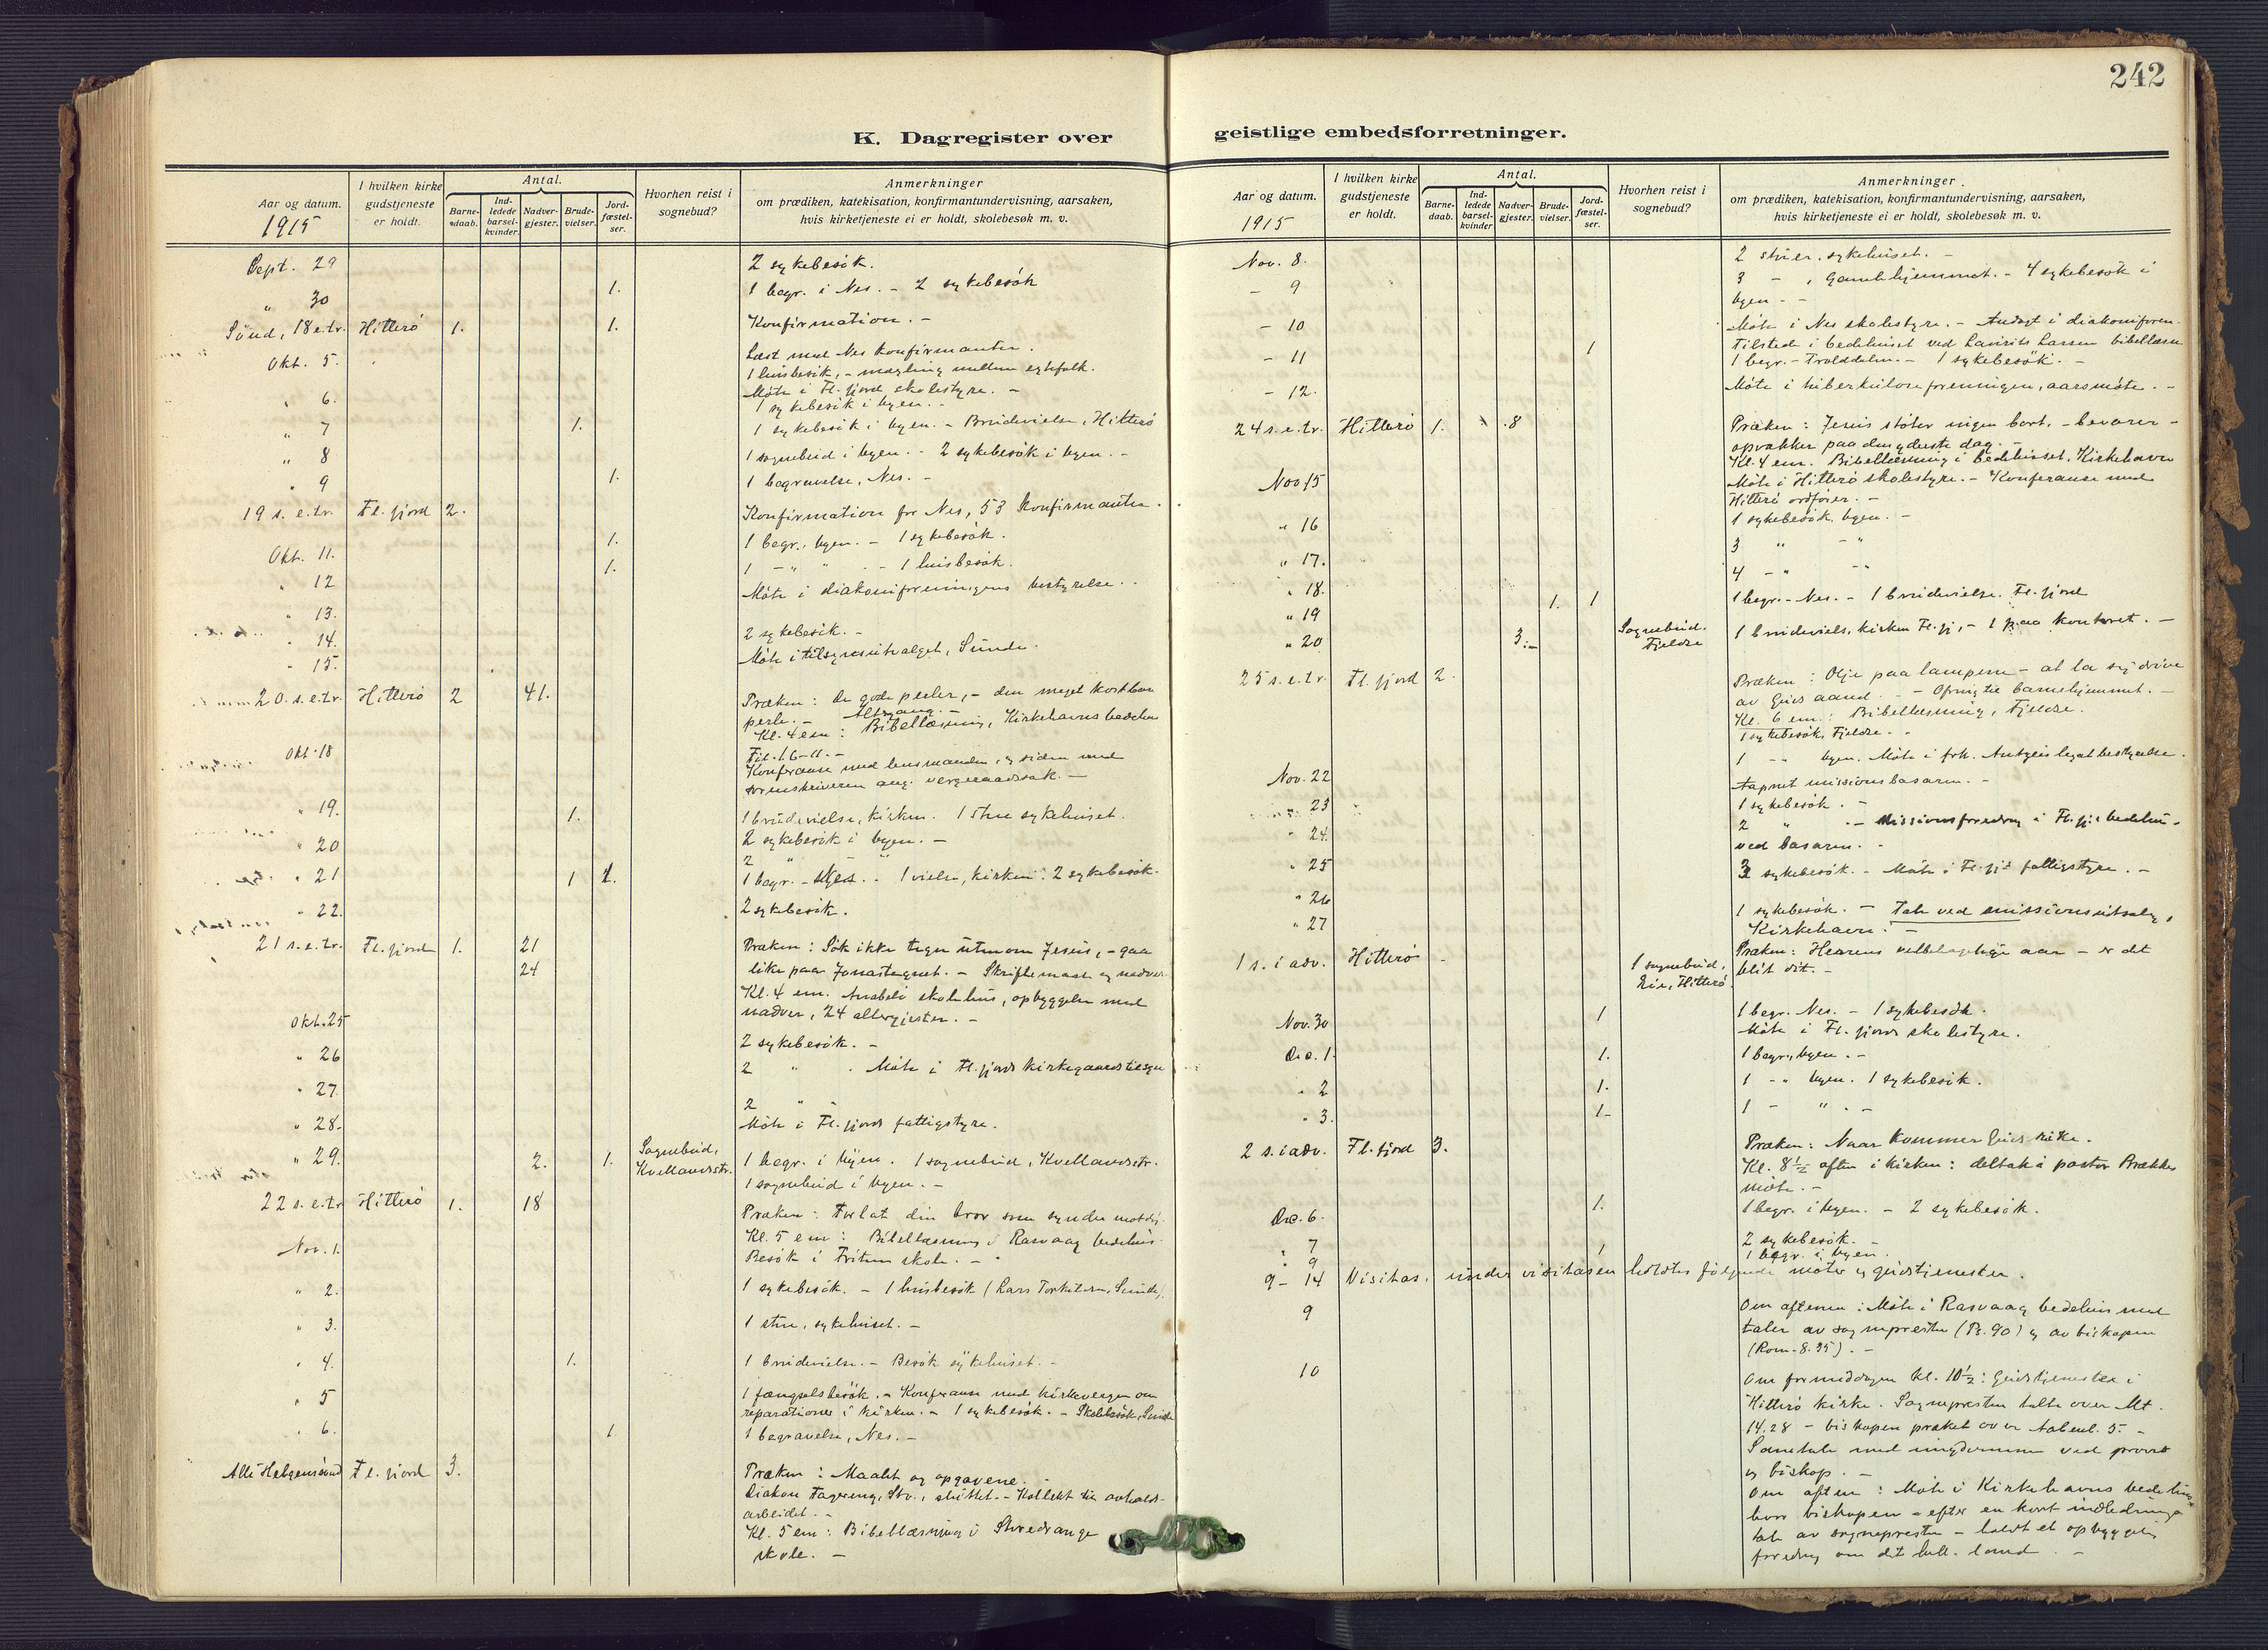 242
K. Dagregister over
geistlige embedsforretninger.
Aar og datum.
1915
I hvilken kirke gudstjeneste er holdt.
Antal.
Barne-daab.
Ind-ledede barsel-kvinder.
Nadver-gjester.
Brude-vielser.
Jord-fæstel-ser.
Hvorhen reist i sognebud?
Anmerkninger
om prædiken, katekisation, konfirmantundervisning, aarsaken,
hvis kirketjeneste ei er holdt, skolebesøk m. v.
Sept. 29 2 sykebesök.
" 30 1. 1 begr. i Nes. - 2 sykebesök
Sönd, 18 e.tr. Hitterö 1. 1. Konfirmation. -
Okt. 5. Læst med Nes konfirmanter.
1 husbesök, - mægling mellem egtefolk.
Möte i Fl.fjord skolestyre. -
" 6. 1 sykebesök i byen. -
" 7 1. 1 sykebesök i byen. - Brudevielse, Hitterö
" 8 1 sognebud i byen. - 2 sykebesök i byen. -
" 9 1. 1 begravelse, Nes. -
19 s. e.tr. Fl.fjord 2. Konfirmation for Nes, 53 Konfirmanter.
Okt. 11. 1. 1 begr., byen. - 1 sykebesök.
" 12 1. 1 - " " - 1 husbesök.
" 13. Möte i diakoniforeningens bestyrelse. -
" 14. 2 sykebesök. -
" 15. Möte i tilsynsutvalget, Sunde.
20. s.e.tr. Hitterö 2 41. Præken: De gode perler, - den meget kostbare
perle. - Altergang. -
Kl. 4 em: Bibellæsning, Kirkehavns bedehus
Fil. 1. 6-11. -
Okt. 18 Konferanse med lensmanden, og siden med
sorenskriveren ang. vergeraadssak. -
" 19. 1. 1 brudevielse, kirken. 1 stue sykehuset.
" 20 2 sykebesök i byen. -
2 " - "
" 21 1 1. 1 begr. - Nes. - 1 vielse, kirken. 2 sykebesök.
" 22. 2 sykebesök.
21 s.e.tr. Fl.fjord 1. 21 Præken: Sök ikke tegn utenom Jesus, - gaa
24 like paa Jonastegnet. - Skriftemaal og nadver
Kl. 4 em. Anabelö skolehus, opbyggelse med
nadver, 24 altergjester. -
Okt. 25 2 sykebesök. -
" 26 2 " . Möte i Fl.fjords kirkegaardstilsyn
" 27. 2 " -
" 28. Möte i Fl.fjords fattigstyre.
" 29. 2. 1. Sognebud, Kvellandsstr. 1 begr. i byen. 1 sognebud, Kvellandsstr.
1 sognebud i byen. -
22 s. e.tr Hitterö 1. 18 Præken: Forlat din bror som synder mot dig.
Kl. 5 em: Bibellæsning i Rasvaag bedehus.
Nov. 1. Besök i Fritun skole. -
" 2. 1 sykebesök. - 1 husbesök (Lars Torkildsen, Sunde).
" 3. 1 stue, sykehuset. -
" 4. 1. 1 brudevielse. - Besök sykehuset. -
" 5 1 fængselsbesök. - Konferanse med kirkevergen om
reparationer i kirken. - 1 sykebesök. - Skolebesök, Sunde
" 6. 1 1 begravelse, Nes. -
Alle Helgensönd Fl.fjord 3. Præken: Maalet og opgavene. -
Diakon Fagereng, Stv., sluttet. - Kollekt til avholds-
arbeidet. -
Kl. 5 em: Bibellæsning i Stordrange
skole. -
Aar og datum.
1915
I hvilken kirke gudstjeneste er holdt.
Antal.
Barne-daab.
Ind-ledede barsel-kvinder
Nadver-gjester.
Brude-vielser.
Jord-fæstel-ser.
Hvorhen reist i sognebud?
Anmerkninger
om prædiken, katekisation, konfirmantundervisning, aarsaken,
hvis kirketjeneste ei er holdt, skolebesøk m. v.
Nov. 8. 2 stuer, sykehuset. -
- 9 3 - , Gamlehjemmet. - 4 sykebesök i
byen. -
- 10 Möte i Nes skolestyre. - Andagt i diakoniforen.
Tilstede i bedehuset ved Laurits Larsen bibellæsn
- 11 1 1 begr. - Trolddalen. - 1 sykebesök. -
- 12. Möte i tuberkuloseforeningen, aarsmöte. -
24 s.e.tr. Hitterö 1. 8 Præken: Jesus stöter ingen bort, - bevarer -
opvækker paa den yderste dag. -
Kl. 4 em. Bibellæsning i bedehuset, Kirkehavn
Nov. 15 Möte i Hitterö skolestyre. - Konferanse med
Hitterö ordförer. -
" 16 1 sykebesök, byen. -
" 17. 3 " - "
" 18. 4 - " - "
" 19 1. 1 1 begr. - Nes. - 1 brudevielse. Fl.fjord
" 20 3. Sognebud. Fjeldse 1 brudeviels, kirken Fl.fj, - 1 paa kontoret. -
25 s.e.tr. Fl.fjord 2. Præken: Olje paa lampene - at la sig drive
av Guds aand. - Ofring til barnehjemmet. -
Kl. 6 em: Bibellæsning, Fjeldse.
1 sykebesök, Fjeldse. -
Nov. 22 1 - " byen. Möte i frk. legat bestyrelse.
" 23 Aapnet missionsbasaren. -
1 sykebesök. -
" 24. 2 " - Missionsforedrag i Fl.fj's bedehus
ved basaren. -
" 25 3 sykebesök. - Möte i Fl.fj's fattigstyre. -
" 26 1 sykebesök. - Tale ved missionsutsalg,
" 27 Kirkehavn. -
1 s. i adv. Hitterö - 1 sognebud, Hitterö. Præken: Herrens velbehagelige aar - er det
blit dit. -
Nov. 30 1 1 begr. Nes. - 1 sykebesök.
Möte i Fl.fjords skolestyre.
Dec. 1. 1. 1 begr., byen. -
" 2 1. 1 - " byen. 1 sykebesök.
" 3. 1. 1 - " . -
2 s. i adv. Fl.fjord 3. Præken: Naar kommer Guds rike.
Kl. 8½ aften i kirken: deltok i pastor Brækkes
möte. -
Dec. 6. 1. 1 begr. i byen. - 2 sykebesök.
" 7 2 sykebesök. -
" 9 1 1 begr. i byen.
9 - 14 Visitas. under visitasen holdtes fölgende möter og gudstjenester.
9 Om aftenen: Möte i Rasvaag bedehus med
taler av sognepresten (Ps. 90) og av biskopen
(Rom. 8.35). -
10 Om formiddagen kl. 10½: Gudstjeneste i
Hitterö kirke. Sognepresten talte over Mt.
14,28 - biskopen præket over Aabenb. 5. -
Samtale med ungdommen ved provst
og biskop. -
Om aften: Möte i Kirkehavns bedehus
hvor biskopen - efter en kort indlednings-
tale av sognepresten - holdt et opbyggelig
foredrag om det hell. land. -